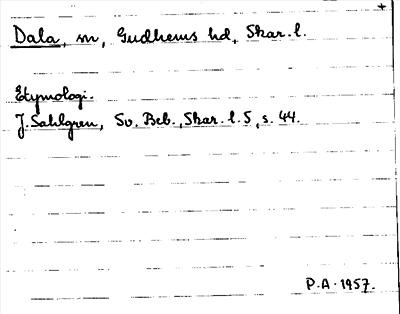 +
Dala, sn, Gudhems hd, Skar. l.
Etymologi:
J. Sahlgren, Sv. Beb., Skar. l. 5, s. 44.
P.A. 1957.